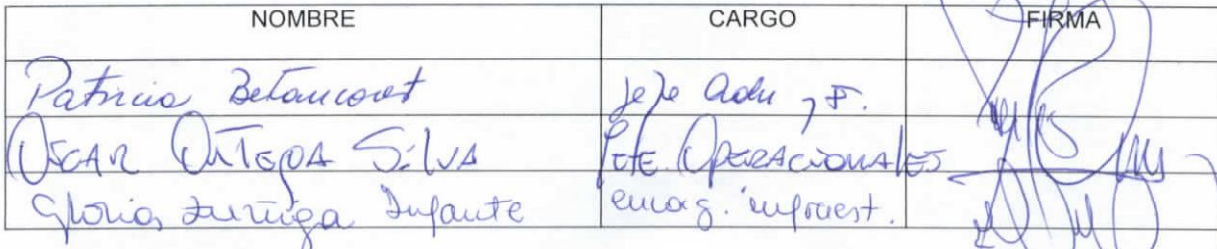 NOMBRE CARGO FIRMA
Patricia Betancourt Jefe Adm y F.
OSCAR ORTEGA SILVA JEFE OPERACIONALES
Gloria Zuñiga Infante encarg. infraest.